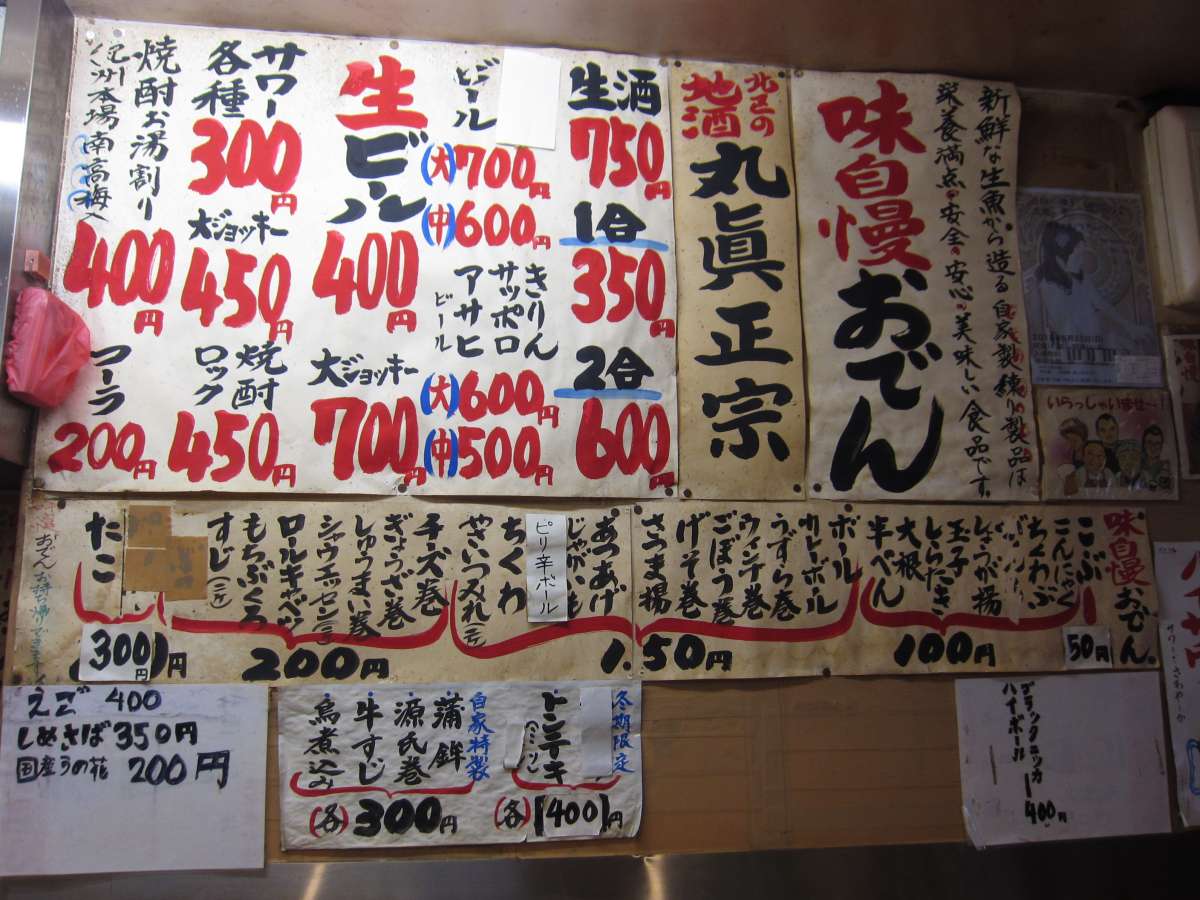 味自慢おでん
新鮮な生魚から造る自家製練り製品は
栄養満点・安全・安心・美味しい食品です。
北区の
地酒
丸眞正宗
生酒
750円
1合
350円
2合
600円
ビール
(大)700円
(中)600円
きりん
サッポロ
アサヒ
ビール
(大)600円
(中)500円
生ビール
400円
大ジョッキー
700円
サワー
各種
300円
大ジョッキー
450円
焼酎
ロック
450円
焼酎お湯割り
紀州本場南高梅入
400円
コーラ
200円
いらっしゃいませ〜!
味自慢おでん
こぶ
50円
こんにゃく
ちくわぶ
しょうが揚
玉子
しらたき
大根
半ぺん
100円
ボール
カレーボール
うずら巻
ウインナ巻
ごぼう巻
げそ巻
さつま揚
あつあげ
じゃがいも
ピリ辛ボール
ちくわ
やさいつみれ(二ケ)
150円
チーズ巻
ぎょうざ巻
しゅうまい巻
シャウエッセン(二ケ)
ロールキャベツ
もちぶくろ
すじ(二ケ)
200円
たこ
300円
おでんお持ち帰りできます
えご 400
しめさば 350円
国産うの花 200円
冬期限定
トンテキ
(各)400円
自家特製
蒲鉾
源氏巻
牛すじ
鳥煮込み
(各)300円
ブラックニッカ
ハイボール
400円